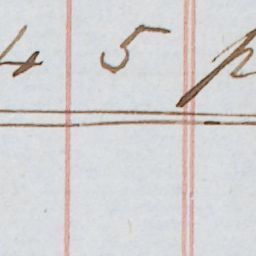 4 5 p